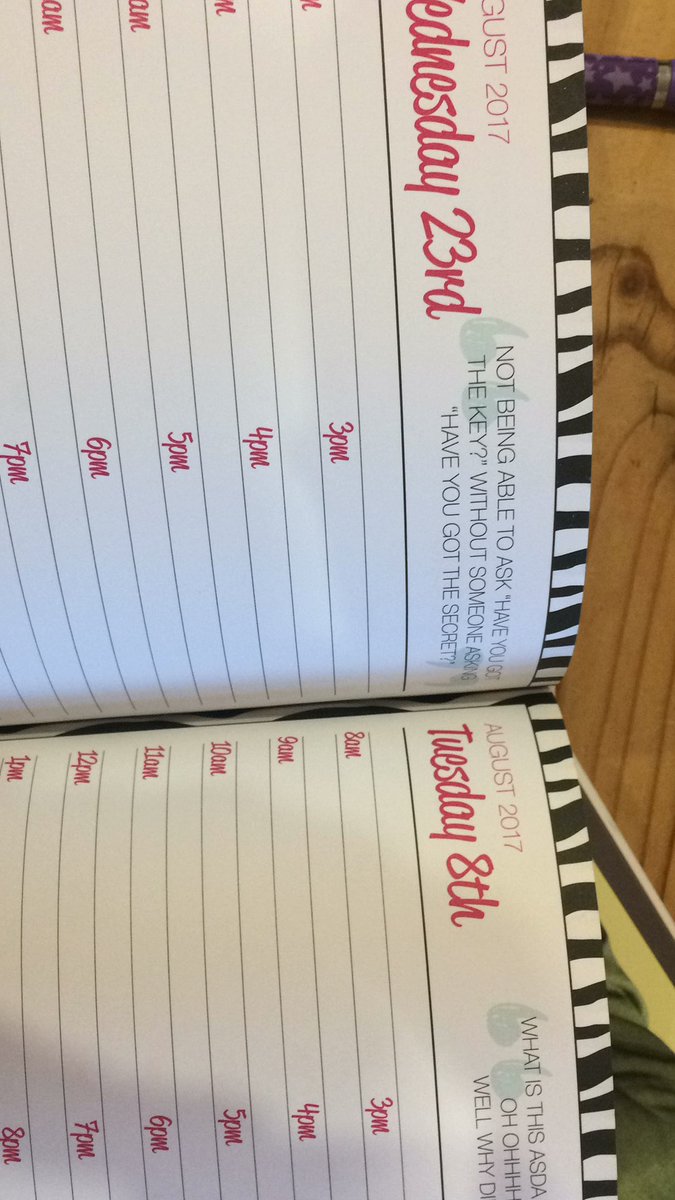 GUST 2017
ednesday 23rd
NOT BEING ABLE TO ASK "HAVE YOU GOT
THE KEY?" WITHOUT SOMEONE ASKING
"HAVE YOU GOT THE SECRET?"
3pm
4pm
5pm
6pm
am
7pm
AUGUST 2017
Tuesday 8th
WHAT IS THIS ASDA
OH OHHH
WELL WHY DI
8am
3pm
9am
4pm
10am
5pm
11am
6pm
12pm
7pm
1pm
8pm